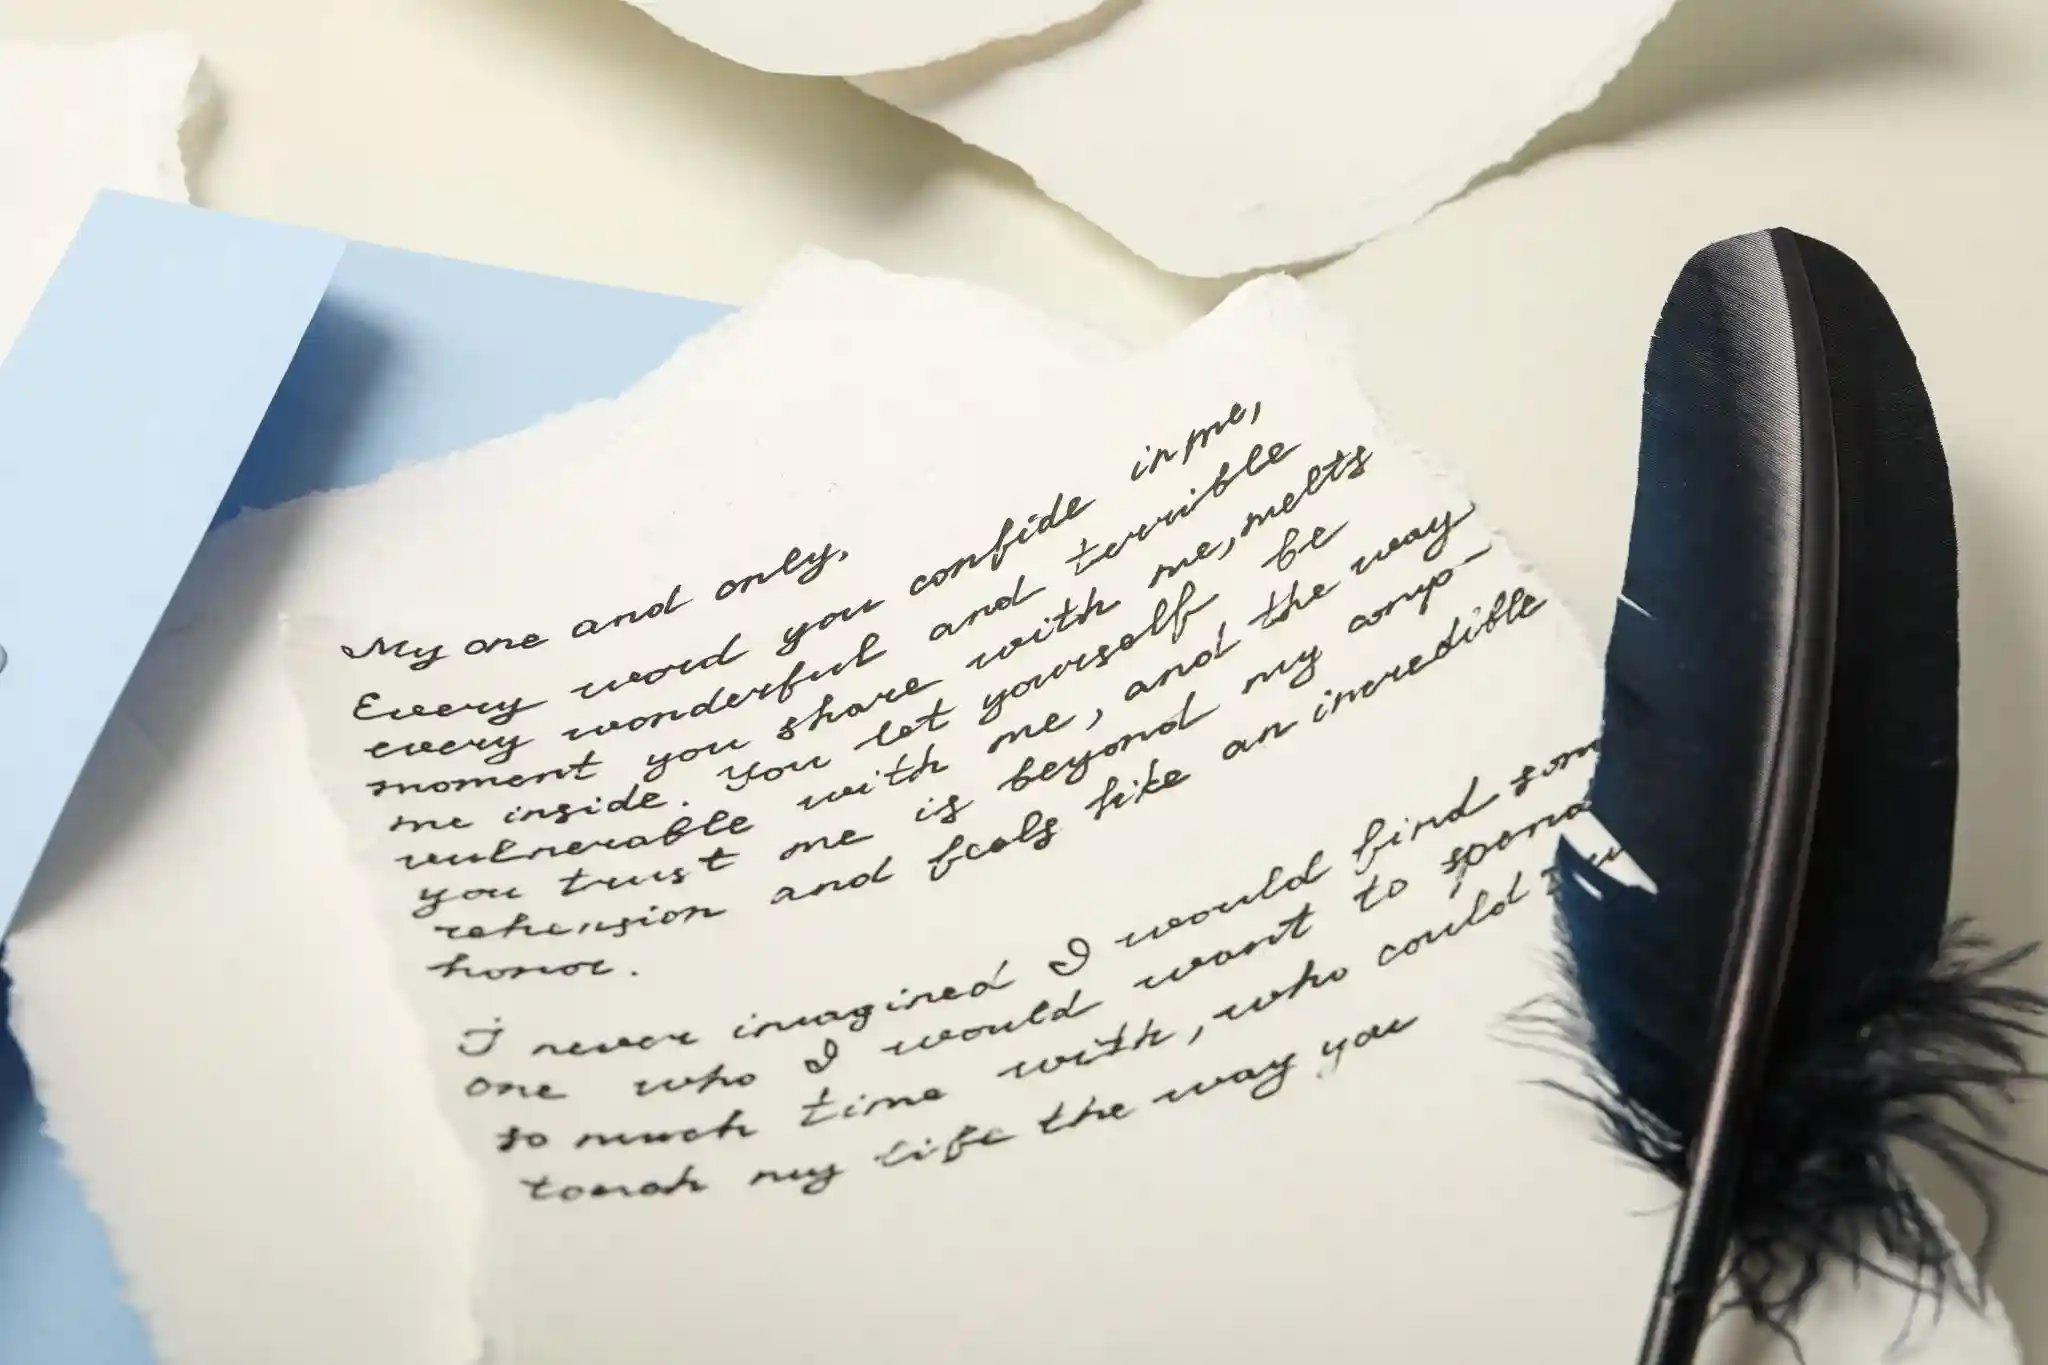 My one and only,
Every word you confide in me,
every wonderful and terrible
moment you share with me, melts
me inside. You let yourself be
vulnerable with me, and the way
you trust me is beyond my comp-
rehension and feels like an incredible
honor.
I never imagined I would find som
one who I would want to spend
so much time with, who could
touch my life the way you